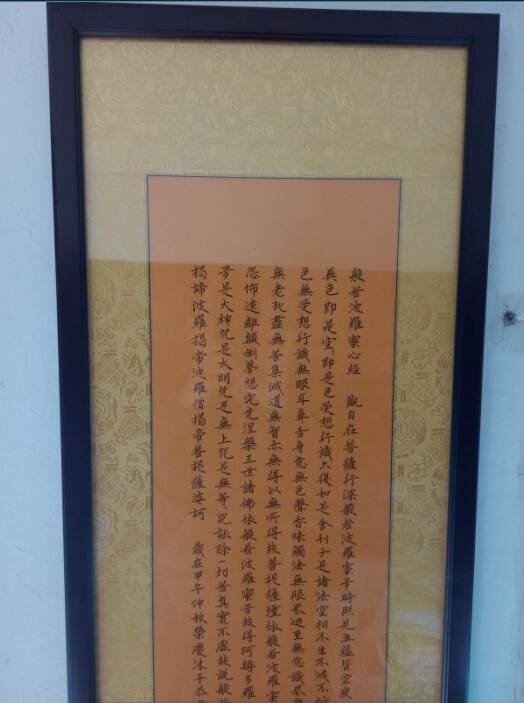 般若波羅蜜心經 觀自在菩薩行深般若波羅蜜多時照見五蘊皆空度
異色即是空空即是色受想行識亦復如是舍利子是諸法空相不生不滅不垢
色無受想行識無眼耳鼻舌身意無色聲香味觸法無眼界乃至無意識界無
無老死盡無苦集滅道無智亦無得以無所得故菩提薩埵依般若波羅蜜
恐怖遠離顛倒夢想究竟涅槃三世諸佛依般若波羅蜜多故得阿耨多羅
多是大神咒是大明咒是無上咒是無等咒能除一切苦真實不虛故說般若
揭諦波羅揭帝波羅僧揭帝菩提薩婆訶 歲在甲午仲秋榮慶沐手恭